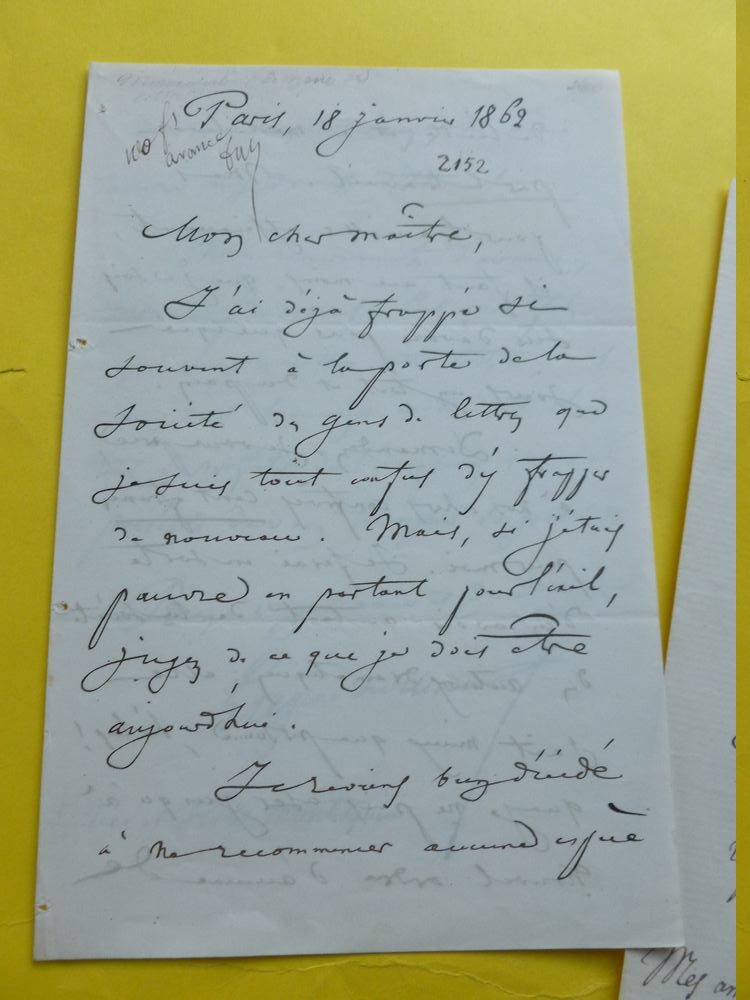 Paris, 18 janvier 1862
100 f
avance
2152
Mon cher maître,
J'ai déjà frappé si
souvent à la porte de la
Société des gens de lettres que
je suis tout confus d'y frapper
de nouveau. Mais, si j'étais
pauvre en partant pour l'exil,
jugez de ce que je dois être
aujourd'hui.
Je reviens bien décidé
à ne recommencer aucune espèce
Mes